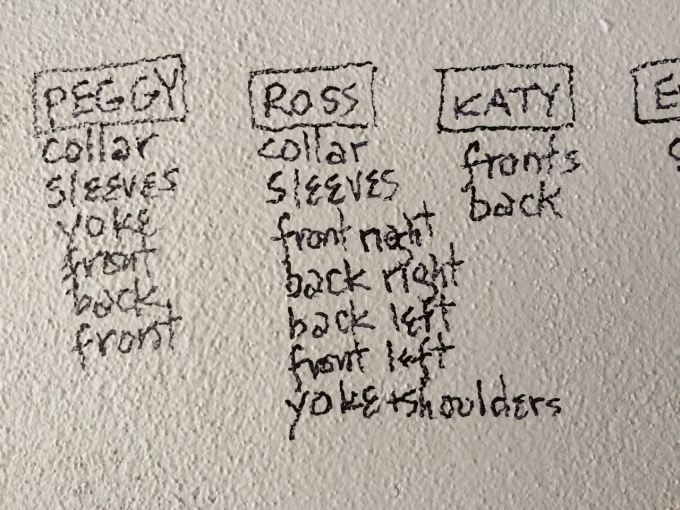 PEGGY
collar
sleeves
yoke
front
back
front
ROSS
collar
sleeves
front right
back right
back left
front left
yoke + shoulders
KATY
fronts
back